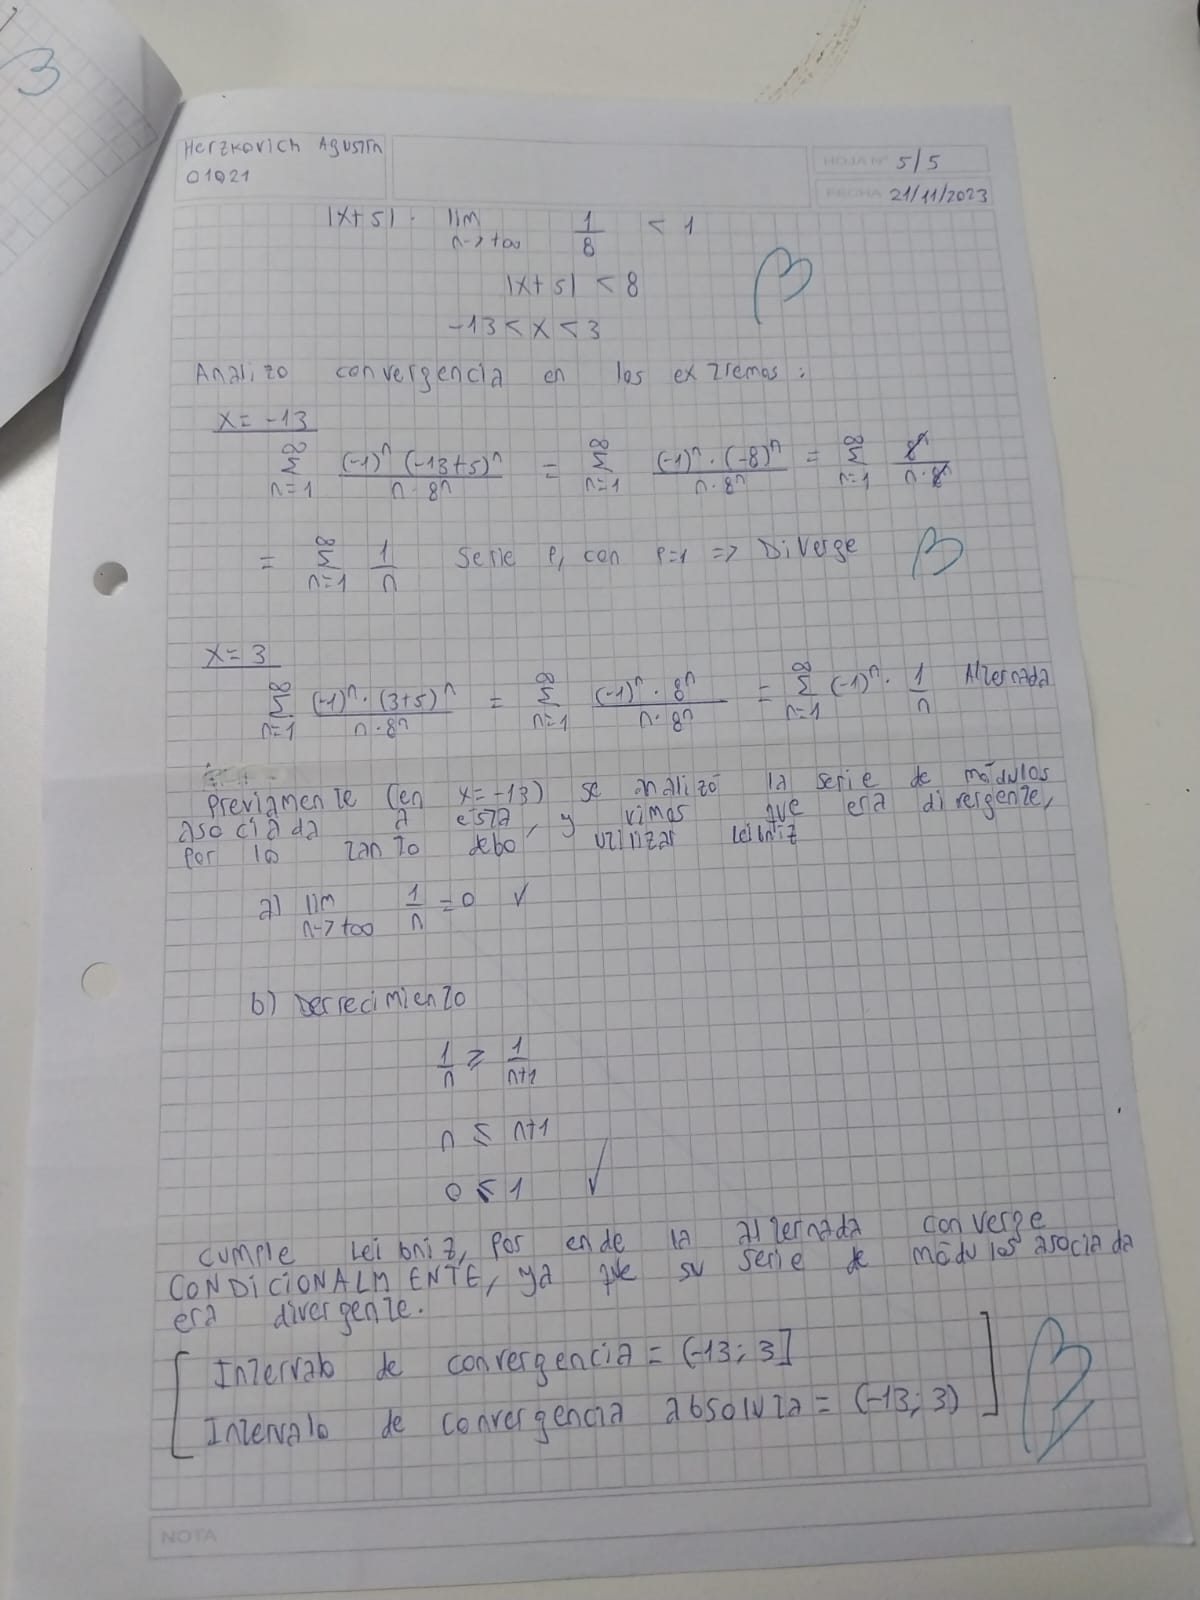 Herzkovich Agustín
01921
HOJA Nº 5/5
FECHA 21/11/2023
|x+5| · lim n→+∞ 1/8 < 1
|x+5| < 8
-13 < x < 3
Analizo convergencia en los extremos:
x = -13
∞ Σ n=1 (-1)^n (-13+5)^n / n · 8^n = ∞ Σ n=1 (-1)^n · (-8)^n / n · 8^n = ∞ Σ n=1 8^n / n · 8^n
= ∞ Σ n=1 1/n Serie P, con P=1 => Diverge
x = 3
∞ Σ n=1 (-1)^n · (3+5)^n / n · 8^n = ∞ Σ n=1 (-1)^n · 8^n / n · 8^n = ∞ Σ n=1 (-1)^n · 1/n Alternada
Previamente (en x = -13) se analizó la serie de módulos
asociada a esta, y vimos que era divergente,
por lo tanto debo utilizar Leibniz
a) lim n→+∞ 1/n = 0 ✓
b) Derrecimiento
1/n ≥ 1/n+1
n ≤ n+1
0 ≤ 1 ✓
Cumple Leibniz, por ende la alternada converge
CONDICIONALMENTE, ya que su serie de módulos asociada
era divergente.
[ Intervalo de convergencia = (-13; 3]
Intervalo de convergencia absoluta = (-13; 3) ]
NOTA